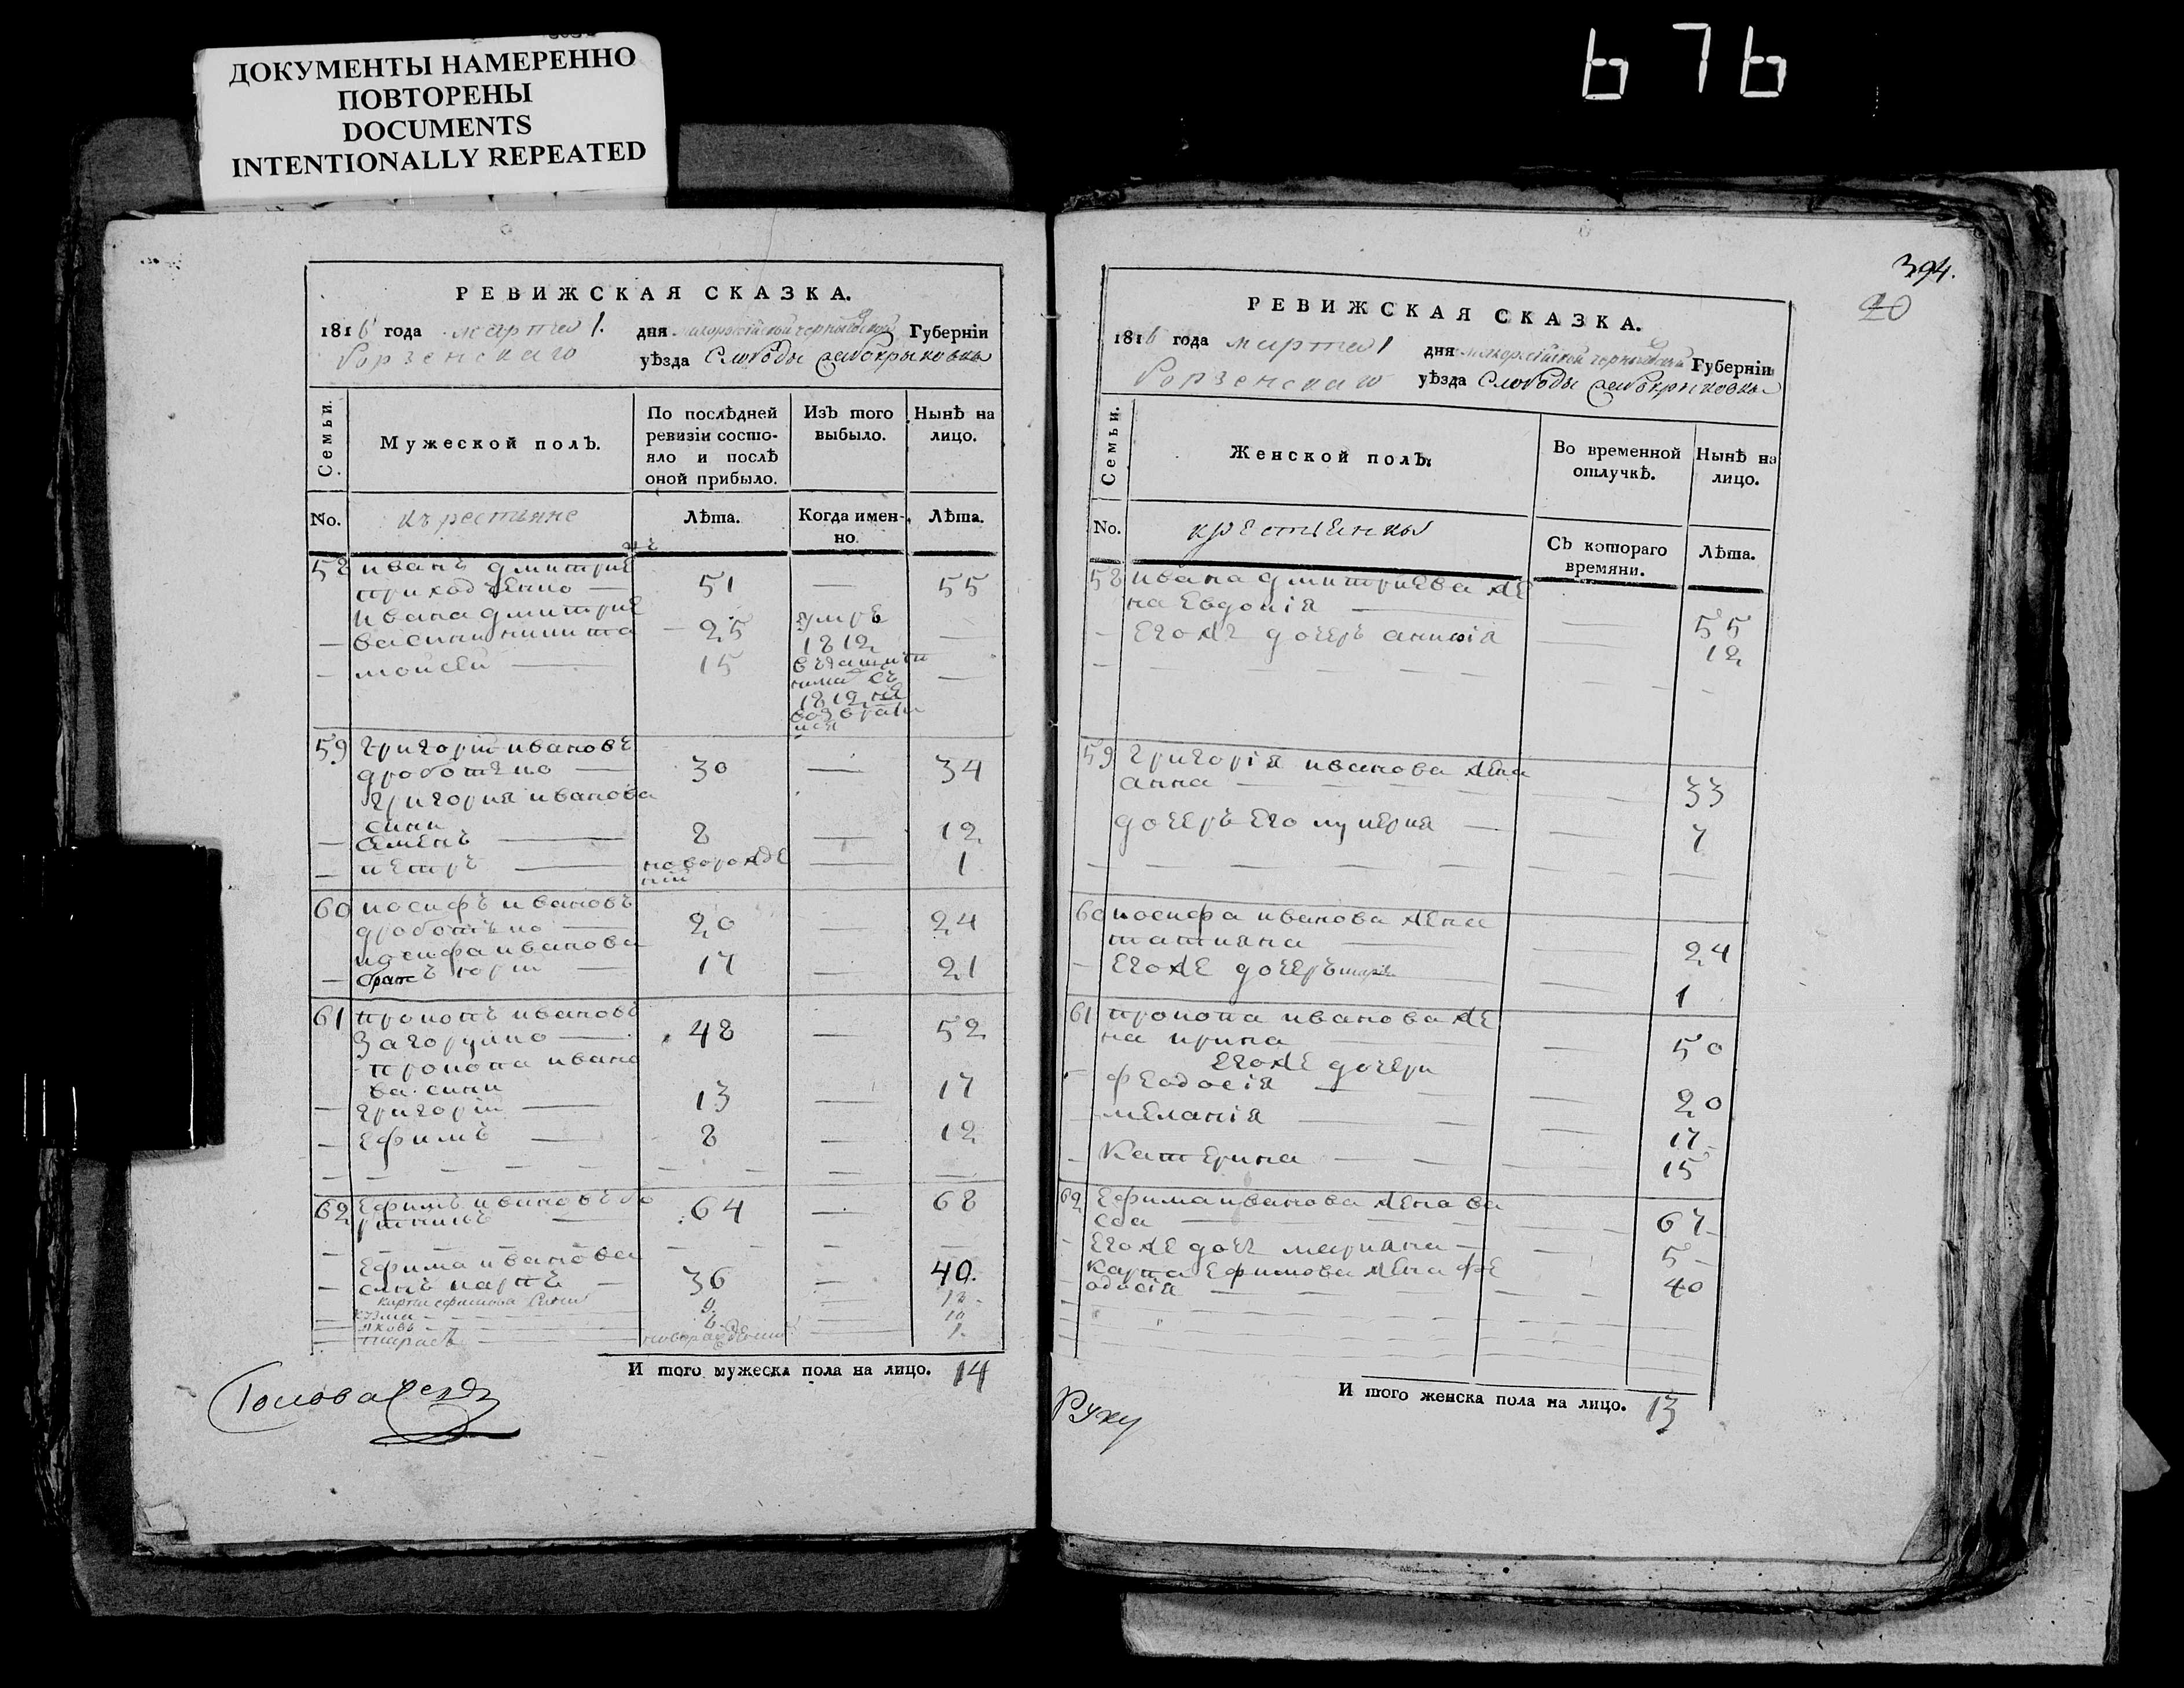 ДОКУМЕНТЫ НАМЕРЕННО
ПОВТОРЕНЫ
DOCUMENTS
INTENTIONALLY REPEATED
676
РЕВИЖСКАЯ СКАЗКА.
1816 года марта 1. дня Губерніи
уѣзда Слободы
Семьи.
Мужеской полъ.
По послѣдней
ревизіи состо-
яло и послѣ
оной прибыло.
Изъ того
выбыло.
Нынѣ на
лицо.
No.
къ рестьяне
Лѣта.
Когда имен-
но.
Лѣта.
58 иванъ дмитрие
приходченко — 51 — 55
ивана дмитрие
— ва сини никита — 25 умре 1812 —
— мойсей — 15
1812 не
59 григорий ивановъ
дроботько — 30 — 34
григория иванова
сини
— семенъ — 8 — 12
— петръ — новорожде
ний — 1
60 иосифъ ивановъ
дроботько — 20 — 24
иосифа иванова
— братъ юрий — 17 — 21
61 прокопъ ивановъ
Загоруико — 48 — 52
прокопа ивано
ва сини
— григорий — 13 — 17
— Ефимъ — 8 — 12
62 Ефимъ ивановъ
— 64 — 68
Ефима иванова
— синъ карпъ — 36 — 40.
карпа ефимова сини
кузма — 9. — 13
яковъ — 6. — 10
тарасъ — новорожденний — 1.
И того мужеска пола на лицо. 14
Голова
394.
20
РЕВИЖСКАЯ СКАЗКА.
1816 года марта 1 дня Губерніи
уѣзда Слободы
Семьи.
Женской полъ.
Во временной
отлучкѣ.
Нынѣ на
лицо.
No.
крестьянки
Съ котораго
времяни.
Лѣта.
58 ивана дмитриева же
на Евдокія — 55
— Егожъ дочеръ — 12
59 григорія иванова жена
анна — 33
дочеръ его лукерия — 7
60 иосифа иванова жена
татияна — 24
— Егоже дочеръ — 1
61 прокопа иванова же
на ирина — 50
Егоже дочери
— феодосія — 20
меланія — 17
— Катерина — 15
62 Ефима иванова жена ва
сса — 67
— Егоже доч марияна — 5
Карпа Ефимова жена фе
одосія — 40
И того женска пола на лицо. 13
Руку